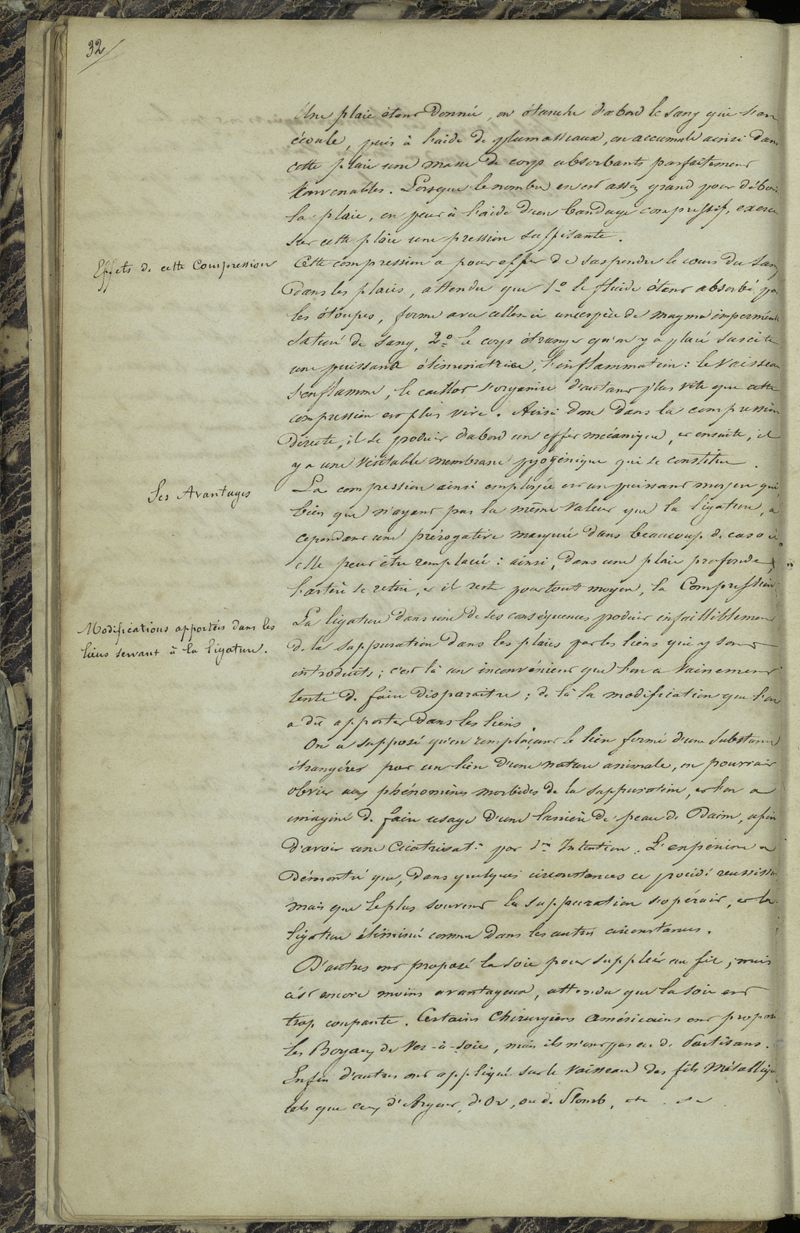 32/
Une plaie étant Donnée, on étanche d'abord le sang qui s'en
écoule, puis à l'aide de plumasseaux, on accumule ainsi dans
cette plaie une masse de corps absorbants parfaitement
convenables. Lorsque le nombre en est assez grand pour débor
la plaie, on peut à l'aide d'un bandage compressif, exerc
sur cette plaie une pression suffisante.
Effets de cette Compression
Cette compression a pour effet de suspendre le cours du sang
dans les plaies, attendu que 1.o le fluide étant absorbé par
les étoupes, forme avec celles-ci une espèce de magma imperméa
saturé de sang, 2.o le corps étranger qu'on y a placé suscite
une puissance éliminatrice, l'inflammation: le vaisseau
s'enflamme, le caillot s'organise d'autant plus vite que cette
compression est plus vive. Ainsi donc dans la compression
directe, il se produit d'abord un effet mécanique, et ensuite, il
y a une véritable membrane pyogénique qui se constitue.
Ses Avantages
La compression ainsi employée est un puissant moyen qui
bien que n'ayant pas la même valeur que la ligature, a
cependant une prérogative marquée dans beaucoup de cas où
elle peut être remplacée: ainsi, dans une plaie profonde,
l'artère se retire, et il reste pour tout moyen, la Compression
Modifications apportées dans les
liens servant à la ligature.
La ligature dans une de ses conséquences produit infailliblement
de la suppuration dans les plaies par les liens qui y sont
introduits; c'est là un inconvénient que l'on a vainement
tenté de faire disparaître; de là la modification que l'on
a dû apporter dans les liens.
On a supposé qu'en remplaçant le lien formé d'une substance
étrangère par un lien d'une nature animale, on pourrait
obvier aux phénomènes morbides de la suppuration, et l'on a
imaginé de faire usage d'une lanière de peau de Daim, afin
d'avoir une Cicatrisat.n par 1.re Intention. L'expérience a
démontré que, dans quelques circonstances ce procédé réussiss
mais que le plus souvent la suppuration s'opérait, et la
ligature éliminée comme dans les autres circonstances.
D'autres ont proposé la soie pour suppléer au fil; mais
c'est encore moins avantageux, attendu que la soie est
trop coupante. Certains Chirurgiens Américains ont propos
les Boyaux de Ver-à-soie, mais ils n'ont pas eu de Partisans.
Enfin d'autres ont appliqué sur le vaisseau des fils métalliq
tels que ceux d'Argent, d'Or, ou de Plomb, etc